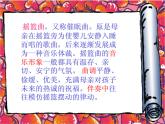 摇篮曲，又称催眠曲，原是
母亲在摇篮旁为使婴儿安静入
睡而唱的歌曲，后来逐渐发展成
为一种音乐体裁。摇篮曲的音
乐形象一般都具有亲切、亲
安、安宁的气氛，曲调平静、
徐缓、优美，充满母亲对幸福
未来的真诚祝愿，伴奏中往
往模仿摇篮摆动的律动。